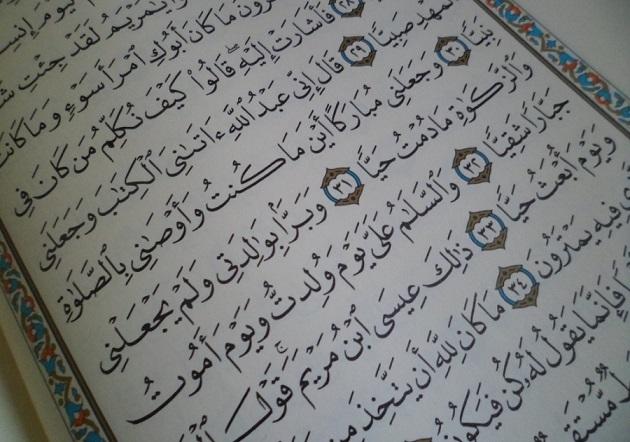 مَرْيَمُ لَقَدْ جِئْتِ
رُونَ مَا كَانَ أَبُوكِ ٱمْرَأَ سَوْءٍ وَمَا كَانَتْ
٢٨ فَأَشَارَتْ إِلَيْهِ ۖ قَالُوا۟ كَيْفَ نُكَلِّمُ مَن كَانَ فِى
ٱلْمَهْدِ صَبِيًّا ٢٩ قَالَ إِنِّى عَبْدُ ٱللَّهِ ءَاتَىٰنِىَ ٱلْكِتَـٰبَ وَجَعَلَنِى
نَبِيًّا ٣٠ وَجَعَلَنِى مُبَارَكًا أَيْنَ مَا كُنتُ وَأَوْصَـٰنِى بِٱلصَّلَوٰةِ
وَٱلزَّكَوٰةِ مَا دُمْتُ حَيًّا ٣١ وَبَرًّۢا بِوَٰلِدَتِى وَلَمْ يَجْعَلْنِى
جَبَّارًا شَقِيًّا ٣٢ وَٱلسَّلَـٰمُ عَلَىَّ يَوْمَ وُلِدتُّ وَيَوْمَ أَمُوتُ
وَيَوْمَ أُبْعَثُ حَيًّا ٣٣ ذَٰلِكَ عِيسَى ٱبْنُ مَرْيَمَ ۚ قَوْلَ
فِيهِ يَمْتَرُونَ ٣٤ مَا كَانَ لِلَّهِ أَن يَتَّخِذَ مِن
فَإِنَّمَا يَقُولُ لَهُۥ كُن فَيَكُونُ